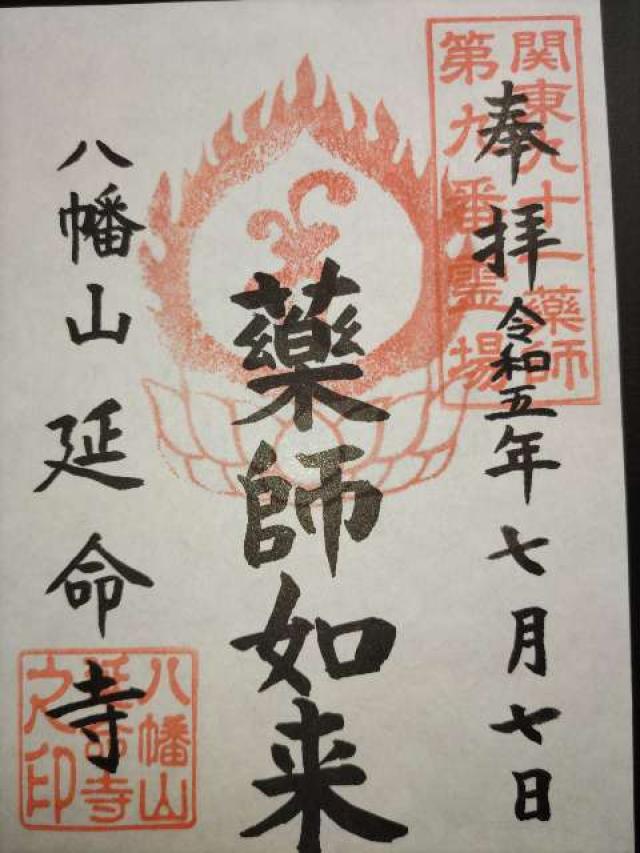 奉拝
令和五年七月七日
関東九十一薬師
第九番霊場
藥師如来
八幡山延命寺
八幡山
延命寺
之印